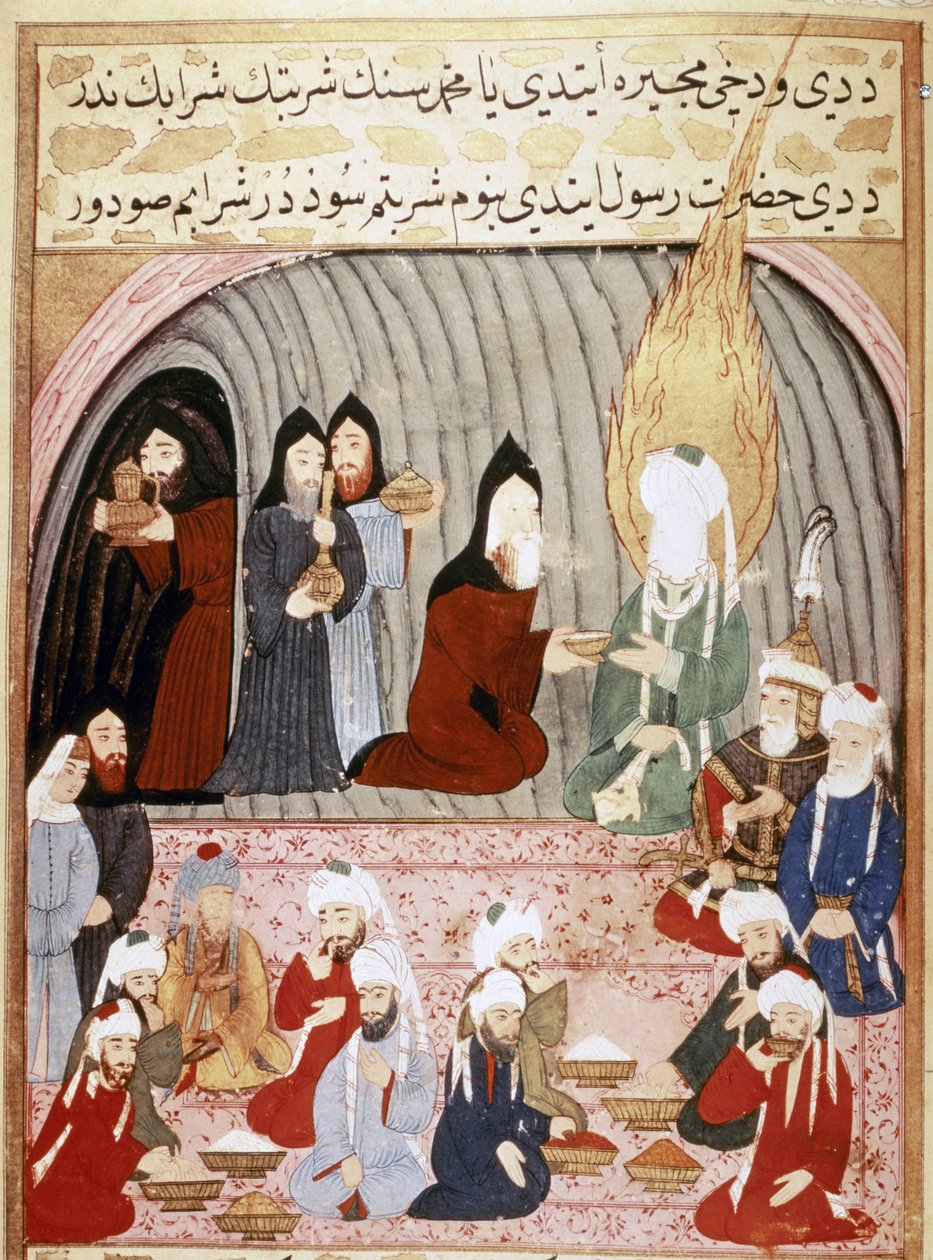 ددی و دخی مجیره أیتدی یا محمد سنك شربتك شرابك ندر
ددی حضرت رسول ایتدی بنوم شربتم سُوددُرْ شرابم صودور